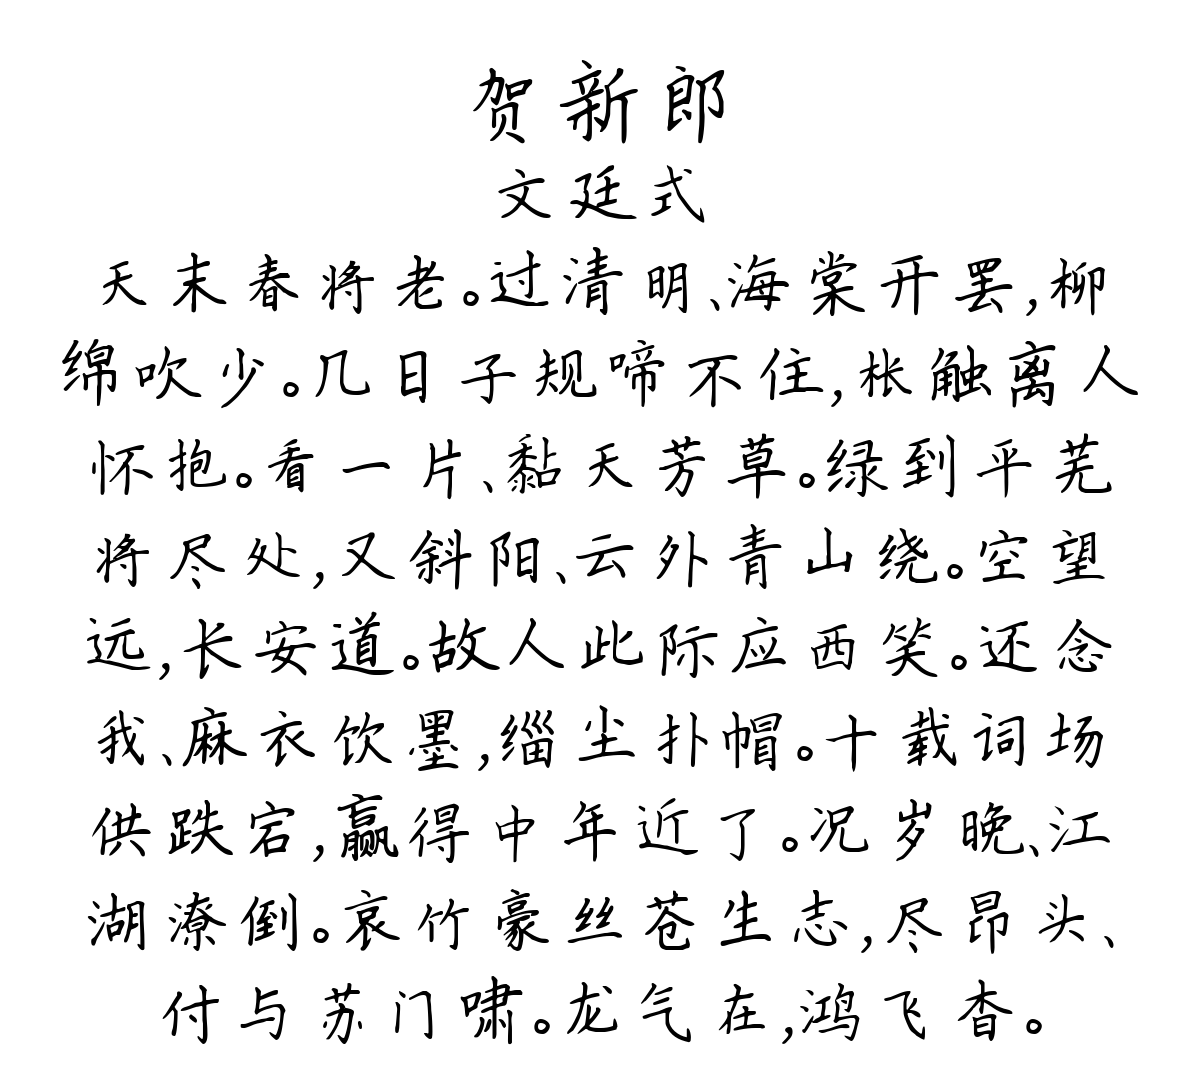 贺新郎
文廷式
天末春将老。过清明、海棠开罢,柳
绵吹少。几日子规啼不住,枨触离人
怀抱。看一片、黏天芳草。绿到平芜
将尽处,又斜阳、云外青山绕。空望
远,长安道。故人此际应西笑。还念
我、麻衣饮墨,缁尘扑帽。十载词场
供跌宕,赢得中年近了。况岁晚、江
湖潦倒。哀竹豪丝苍生志,尽昂头、
付与苏门啸。龙气在,鸿飞杳。